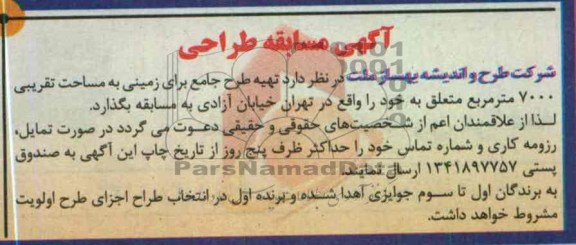 آگهی مسابقه طراحی
شرکت طرح و اندیشه بهساز ملت در نظر دارد تهیه طرح جامع برای زمینی به مساحت تقریبی
۷۰۰۰ مترمربع متعلق به خود را واقع در تهران خیابان آزادی به مسابقه بگذارد.
لذا از علاقمندان اعم از شخصیت‌های حقوقی و حقیقی دعوت می گردد در صورت تمایل،
رزومه کاری و شماره تماس خود را حداکثر ظرف پنج روز از تاریخ چاپ این آگهی به صندوق
پستی ۱۳۴۱۸۹۷۷۵۷ ارسال نمایند.
ParsNamadData
به برندگان اول تا سوم جوایزی اهدا شده و برنده اول در انتخاب طراح اجزای طرح اولویت
مشروط خواهد داشت.